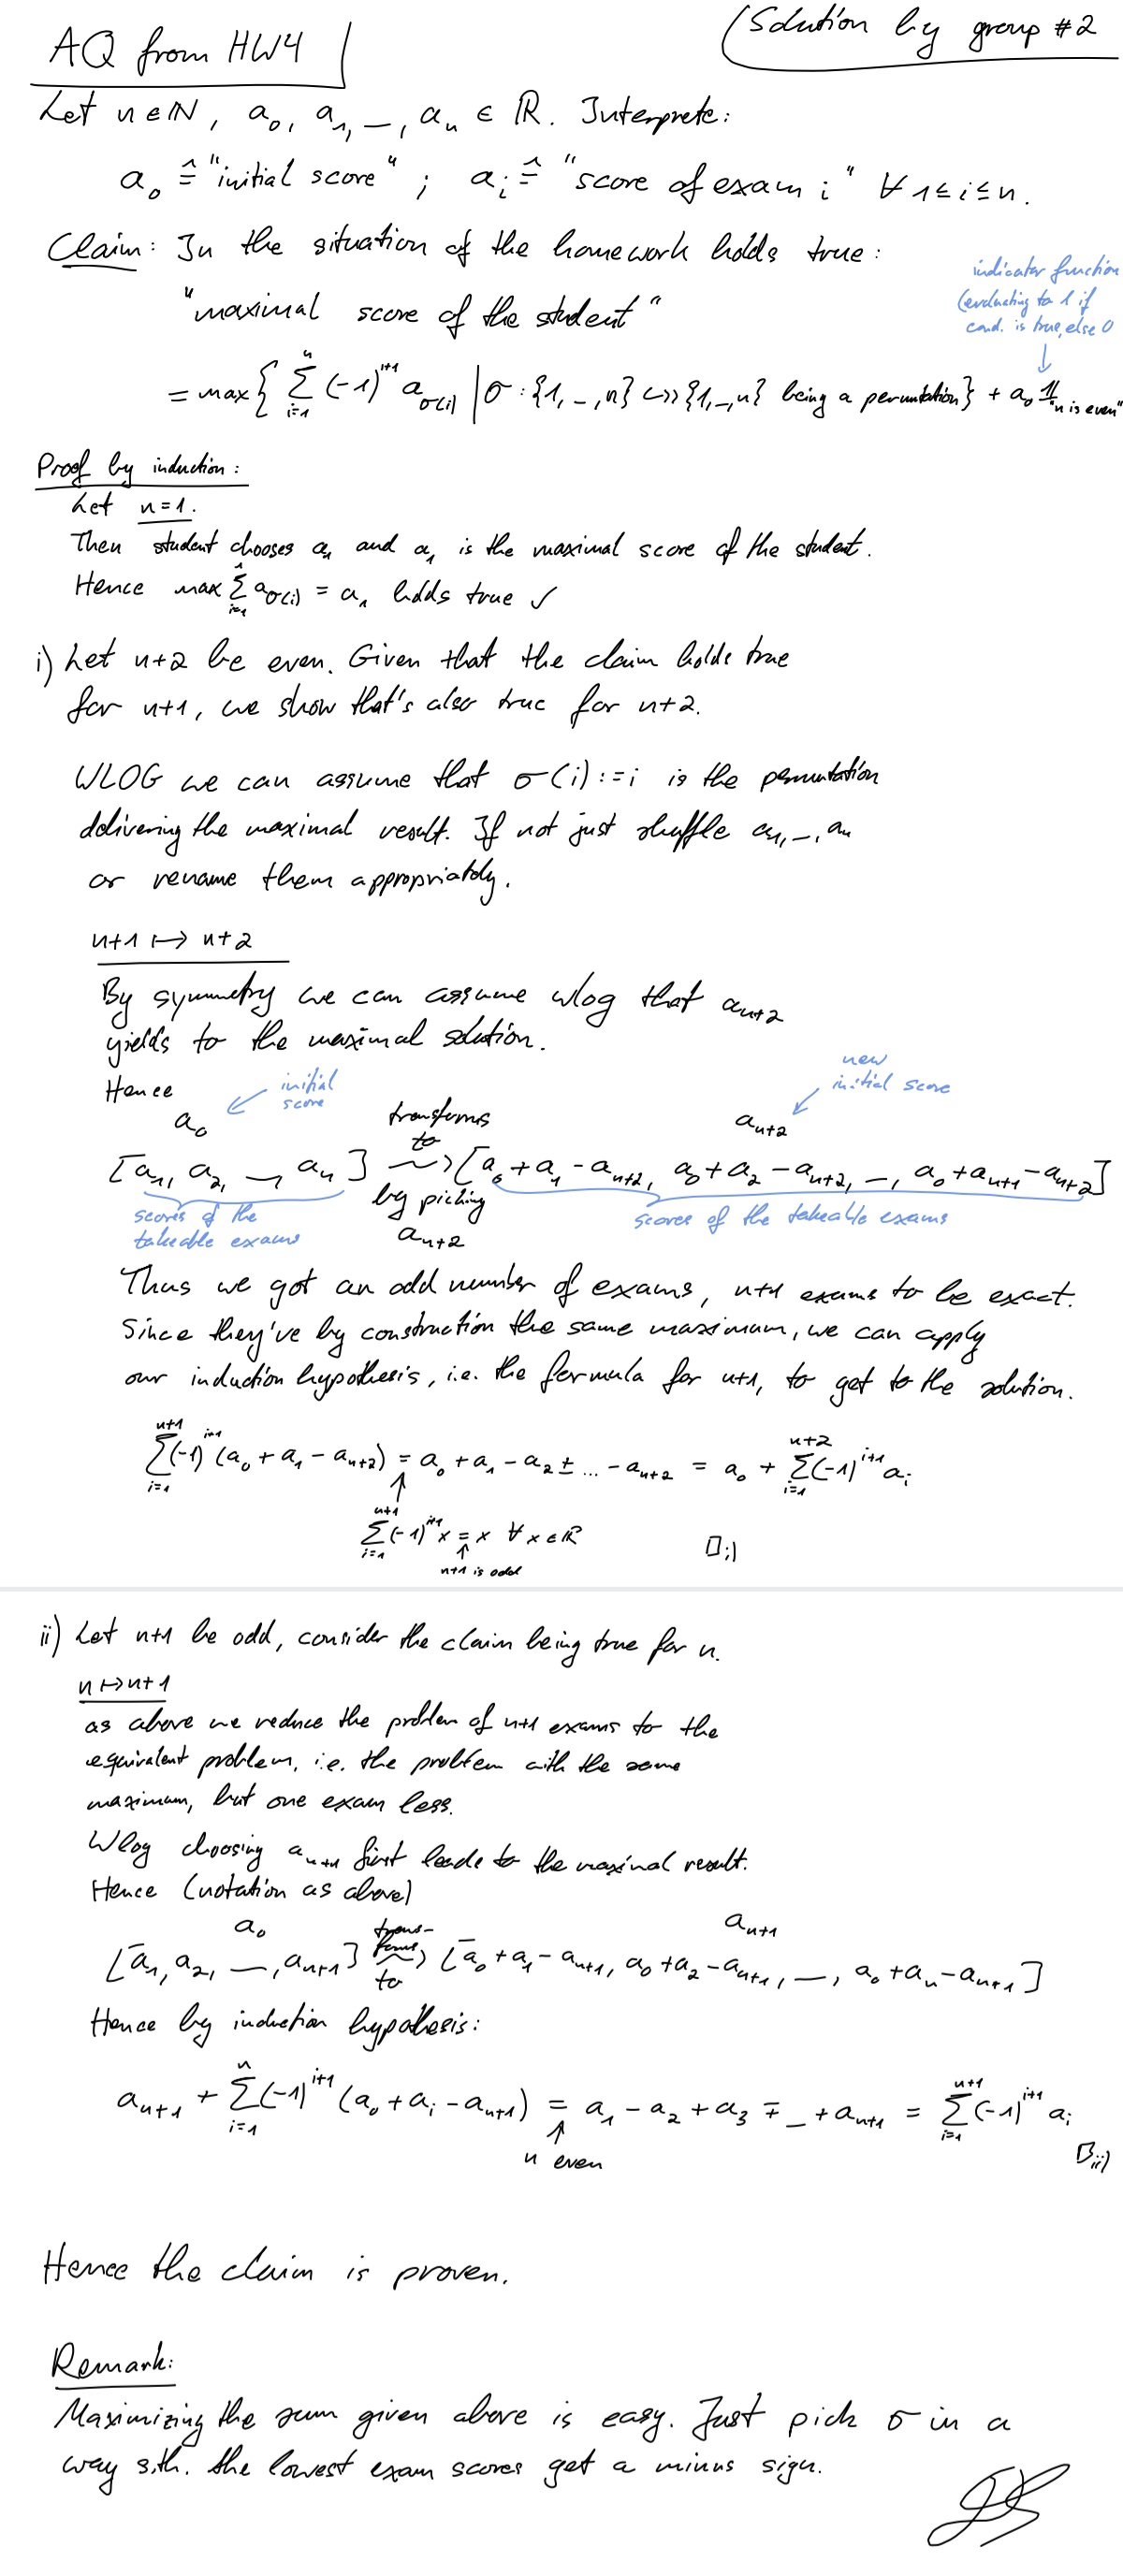 AQ from HW4
(Solution by group #2
Let n∈ℕ, a₀, a₁, —, aₙ ∈ ℝ. Interprete:
a₀ ≙ "initial score" ; aᵢ ≙ "score of exam i" ∀ 1≤i≤n.
Claim: In the situation of the homework holds true:
indicator function
(evaluating to 1 if
cond. is true, else 0
"maximal score of the student"
= max{ ∑_{i=1}^{n} (-1)^{i+1} a_{σ(i)} | σ:{1,—,n} ↪↠ {1,—,n} being a permutation} + a₀ 𝟙_{"n is even"}
Proof by induction:
Let n=1.
Then student chooses a₁ and a₁ is the maximal score of the student.
Hence max ∑_{i=1}^{1} a_{σ(i)} = a₁ holds true ✓
i) Let n+2 be even. Given that the claim holds true
for n+1, we show that's also true for n+2.
WLOG we can assume that σ(i):=i is the permutation
delivering the maximal result. If not just shuffle a₁, —, aₙ
or rename them appropriately.
n+1 ↦ n+2
By symmetry we can assume wlog that a_{n+2}
yields to the maximal solution.
Hence
initial
score
new
initial score
a₀
transforms
to
a_{n+2}
[a₁, a₂, —, aₙ] ⤳ [a₀+a₁-a_{n+2}, a₀+a₂-a_{n+2}, —, a₀+a_{n+1}-a_{n+2}]
by picking
a_{n+2}
scores of the
takeable exams
scores of the takeable exams
Thus we got an odd number of exams, n+1 exams to be exact.
Since they've by construction the same maximum, we can apply
our induction hypothesis, i.e. the formula for n+1, to get to the solution.
∑_{i=1}^{n+1} (-1)^{i+1} (a₀+a₁-a_{n+2}) = a₀+a₁-a₂±...-a_{n+2} = a₀ + ∑_{i=1}^{n+2} (-1)^{i+1} aᵢ
↑
∑_{i=1}^{n+1} (-1)^{i+1} x = x ∀ x∈ℝ
↑
n+1 is odd
□ i)
ii) Let n+1 be odd, consider the claim being true for n.
n ↦ n+1
as above we reduce the problem of n+1 exams to the
equivalent problem, i.e. the problem with the same
maximum, but one exam less.
Wlog choosing a_{n+1} first leads to the maximal result.
Hence (notation as above)
a₀
trans-
forms
to
a_{n+1}
[a₁, a₂, —, a_{n+1}] ⤳ [a₀+a₁-a_{n+1}, a₀+a₂-a_{n+1}, —, a₀+aₙ-a_{n+1}]
Hence by induction hypothesis:
a_{n+1} + ∑_{i=1}^{n} (-1)^{i+1} (a₀+aᵢ-a_{n+1}) = a₁-a₂+a₃∓_+a_{n+1} = ∑_{i=1}^{n+1} (-1)^{i+1} aᵢ
↑
n even
□ ii)
Hence the claim is proven.
Remark:
Maximizing the sum given above is easy. Just pick σ in a
way s.th. the lowest exam scores get a minus sign.